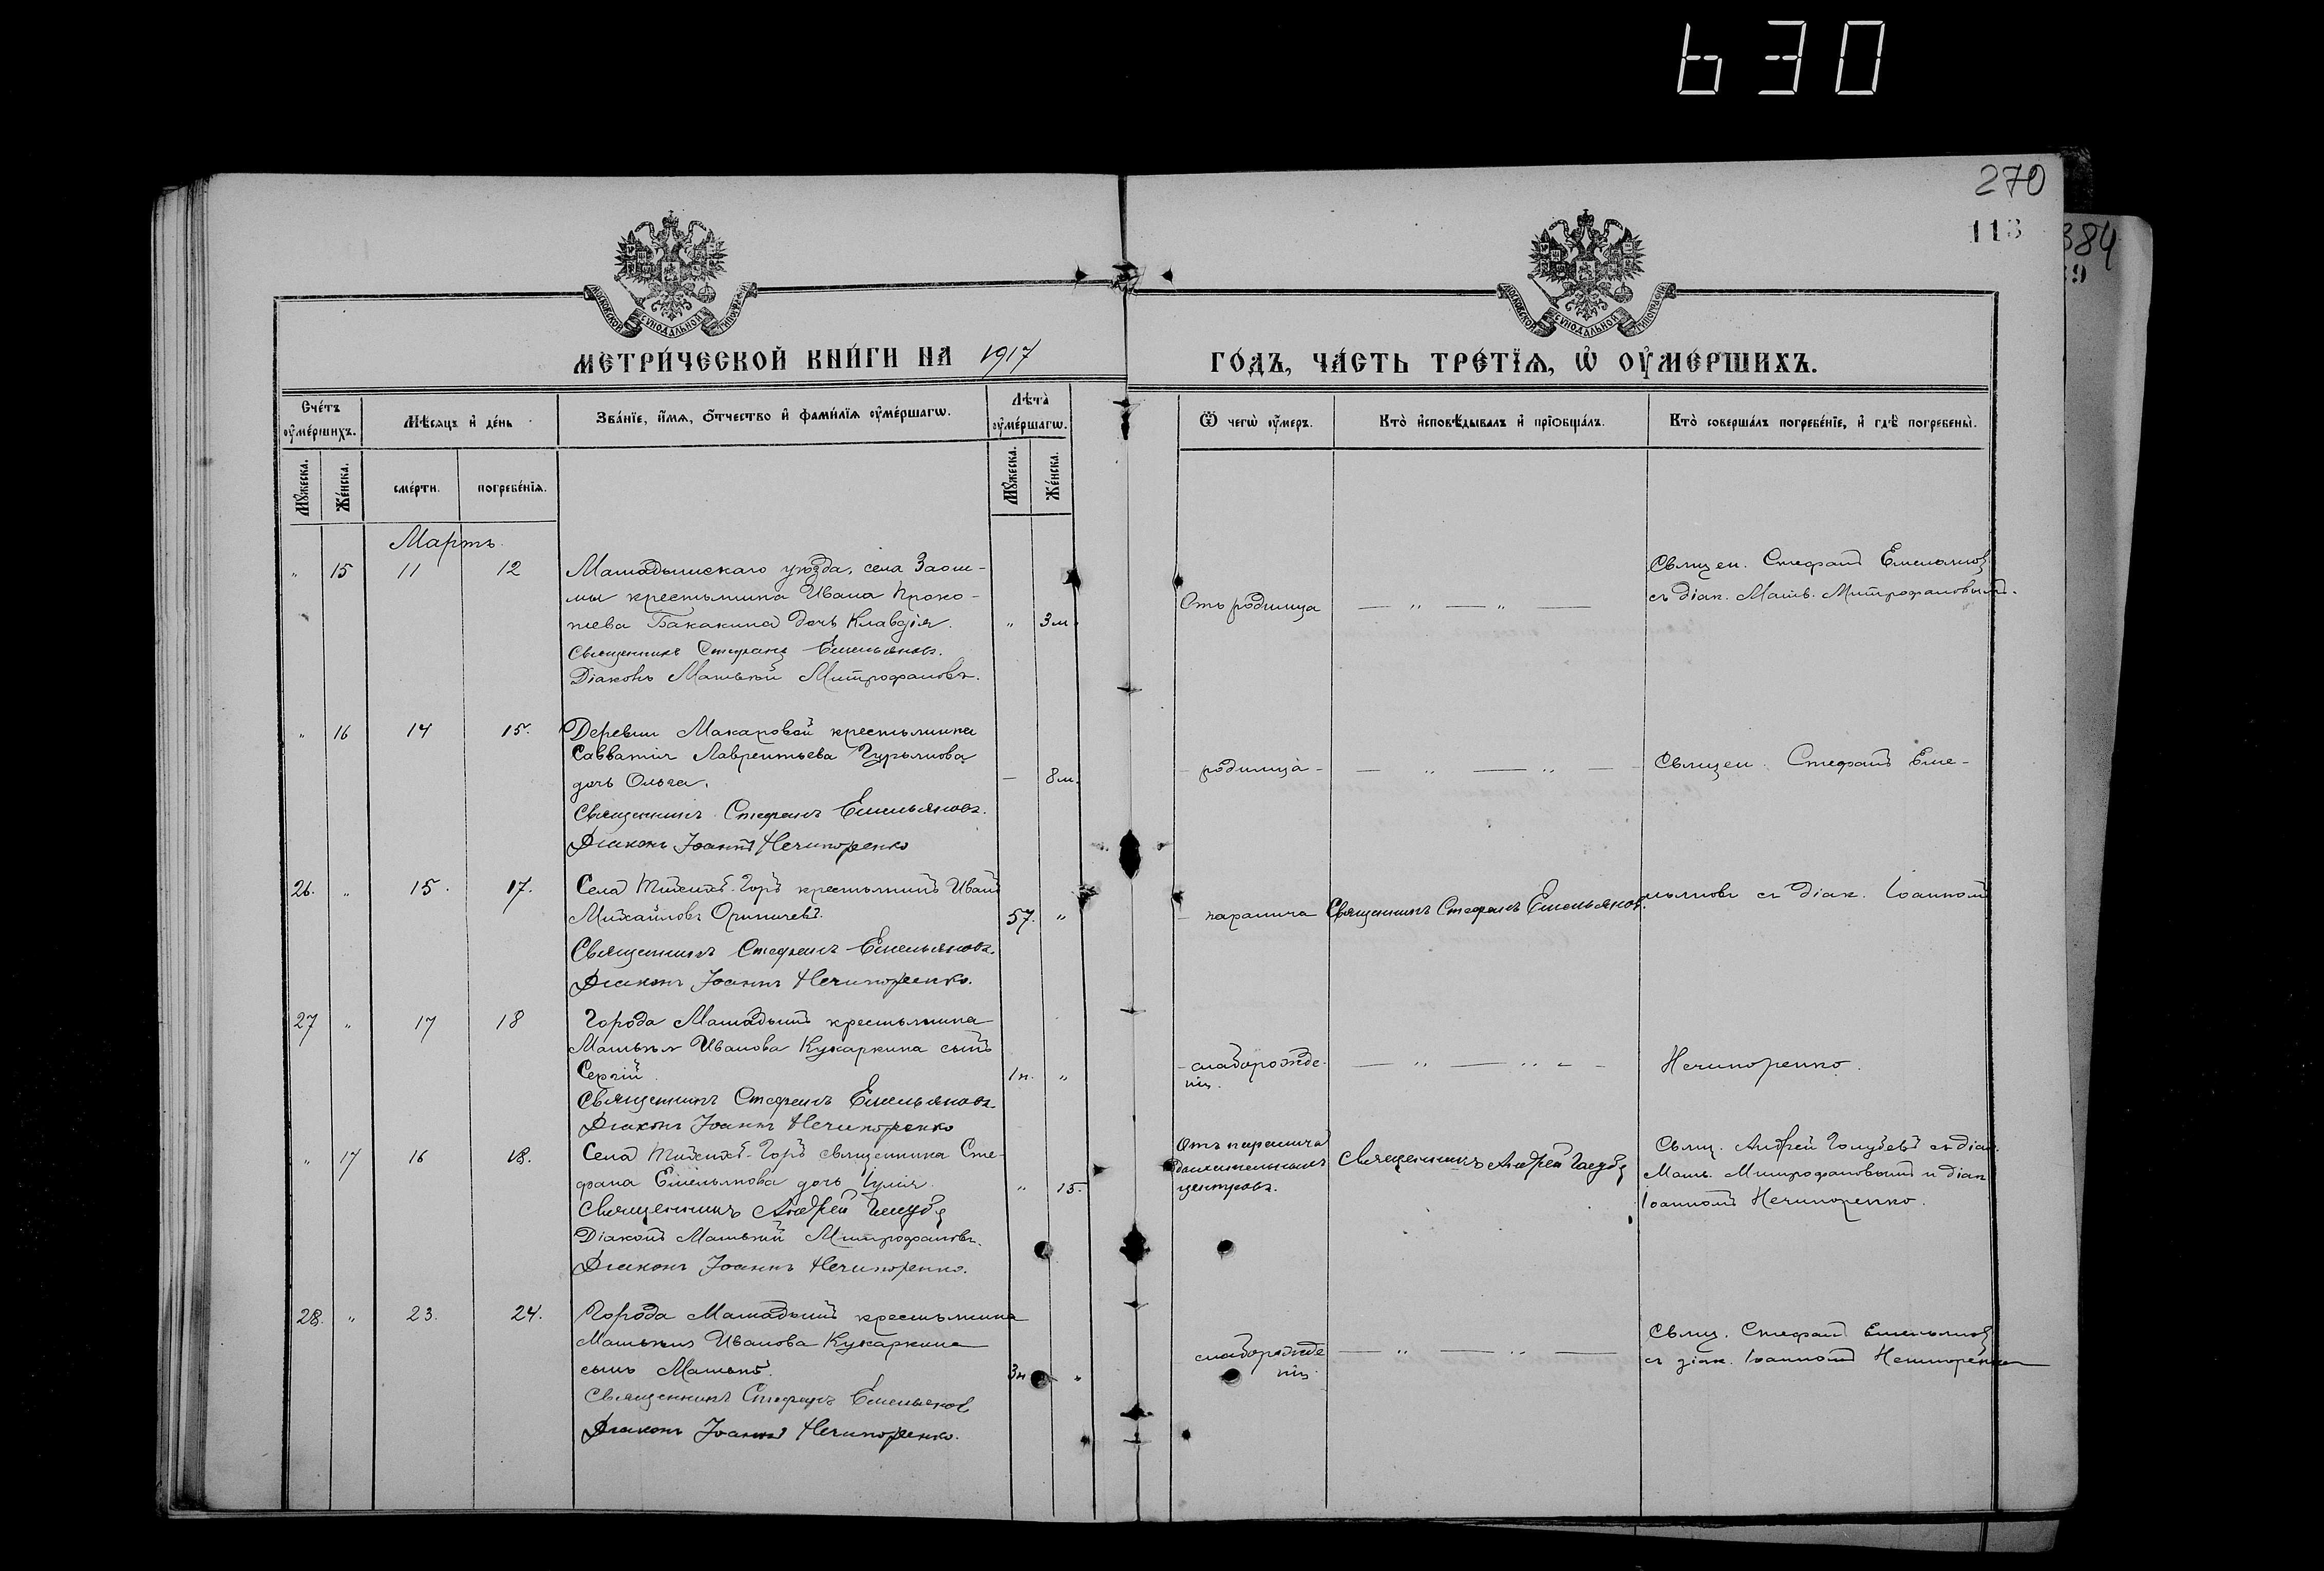 630
270
113
384
МОСКОВСКОЙ СѴНОДАЛЬНОЙ ТИПОГРАФІИ
МОСКОВСКОЙ СѴНОДАЛЬНОЙ ТИПОГРАФІИ
МЕТРИ́ЧЕСКОЙ КНИ́ГИ НА 1917
ГО́ДЪ, ЧА́СТЬ ТРЕ́ТЇѦ, Ѡ҆ ОУ҆МЕ́РШИХЪ.
Сче́тъ оу҆ме́ршихъ.
Мѣ́сяцъ и҆ де́нь
Зва́нїе, и҆́мя, ѻ҆́тчество и҆ фами́лїя оу҆ме́ршагѡ.
Лѣта̀ оу҆ме́ршагѡ.
Ѿ чегѡ̀ оу҆́меръ.
Кто̀ и҆сповѣ́дывалъ и҆ прїѡбща́лъ.
Кто̀ соверша́лъ погребе́нїе, и҆ гдѣ̀ погребены̀.
Мꙋ́жеска.
Же́нска.
сме́рти.
погребе́нїя.
Мꙋ́жеска.
Же́нска.
Мартъ
" 15 11 12 Мамадышскаго уѣзда, села Заош-
мы крестьянина Ивана Проко-
пьева Бакакина дочь Клавдія. " 3 м.
Священникъ Стефанъ Емельяновъ.
Діаконъ Матвѣй Митрофановъ.
Отъ родимца — " — " —
Священ. Стефанъ Емельяновъ
съ діак. Матв. Митрофановымъ.
" 16 14 15. Деревни Макаровой крестьянина
Савватія Лаврентьева Гурьянова
дочь Ольга. — 8 м.
Священникъ Стефанъ Емельяновъ.
Діаконъ Іоаннъ Нечипоренко
- родимца - — " — " — Священ. Стефанъ Еме-
26. " 15. 17. Села Тихихъ-Горъ крестьянинъ Иванъ
Михайловъ 57. "
Священникъ Стефанъ Емельяновъ.
Діаконъ Іоаннъ Нечипоренко.
- паралича Священникъ Стефанъ Емельяновъ. льяновъ съ діак. Іоанномъ
27 " 17 18 Города Мамадышъ крестьянина
Матвѣя Иванова Кухаркина сынъ
Сергій 1 н. "
Священникъ Стефанъ Емельяновъ
Діаконъ Іоаннъ Нечипоренко
- слаборожде-
нія. — " — " — Нечипоренко.
" 17 16 18. Села Тихихъ-Горъ священника Сте-
фана Емельянова дочь Іулія. " 15.
Священникъ Андрей Голубевъ
Діаконъ Матвѣй Митрофановъ.
Діаконъ Іоаннъ Нечипоренко.
Отъ паралича
дыхательныхъ
центровъ.
Священникъ Андрей Голубевъ
Свящ. Андрей Голубевъ съ діак.
Матв. Митрофановымъ и діак
Іоанномъ Нечипоренко.
28. " 23. 24. Города Мамадышъ крестьянина
Матвѣя Ивановa Кухаркина
сынъ Матвѣй. 3 н "
Священникъ Стефанъ Емельяновъ
Діаконъ Іоаннъ Нечипоренко.
слаборожде
нія. — " — " —
Свящ. Стефанъ Емельяновъ
съ діак. Іоанномъ Нечипоренко